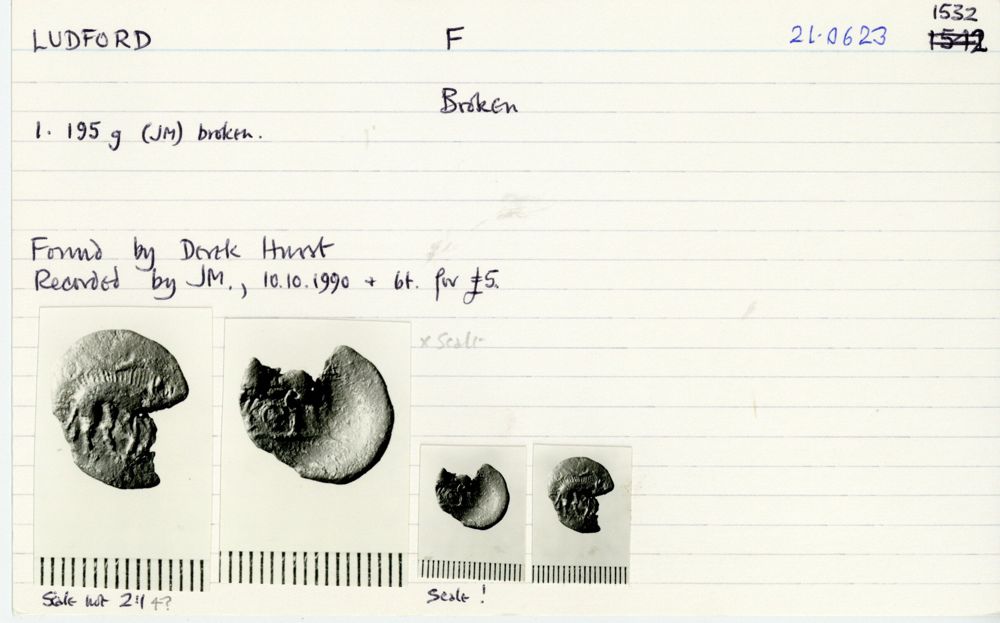 LUDFORD F 21·0623 1532
1542
Broken
1.195 g (JM) broken.
Found by Derek Hurst
Recorded by JM., 10.10.1990 + bt. for £5.
x Scale
Scale not 2:1 4?
Scale !